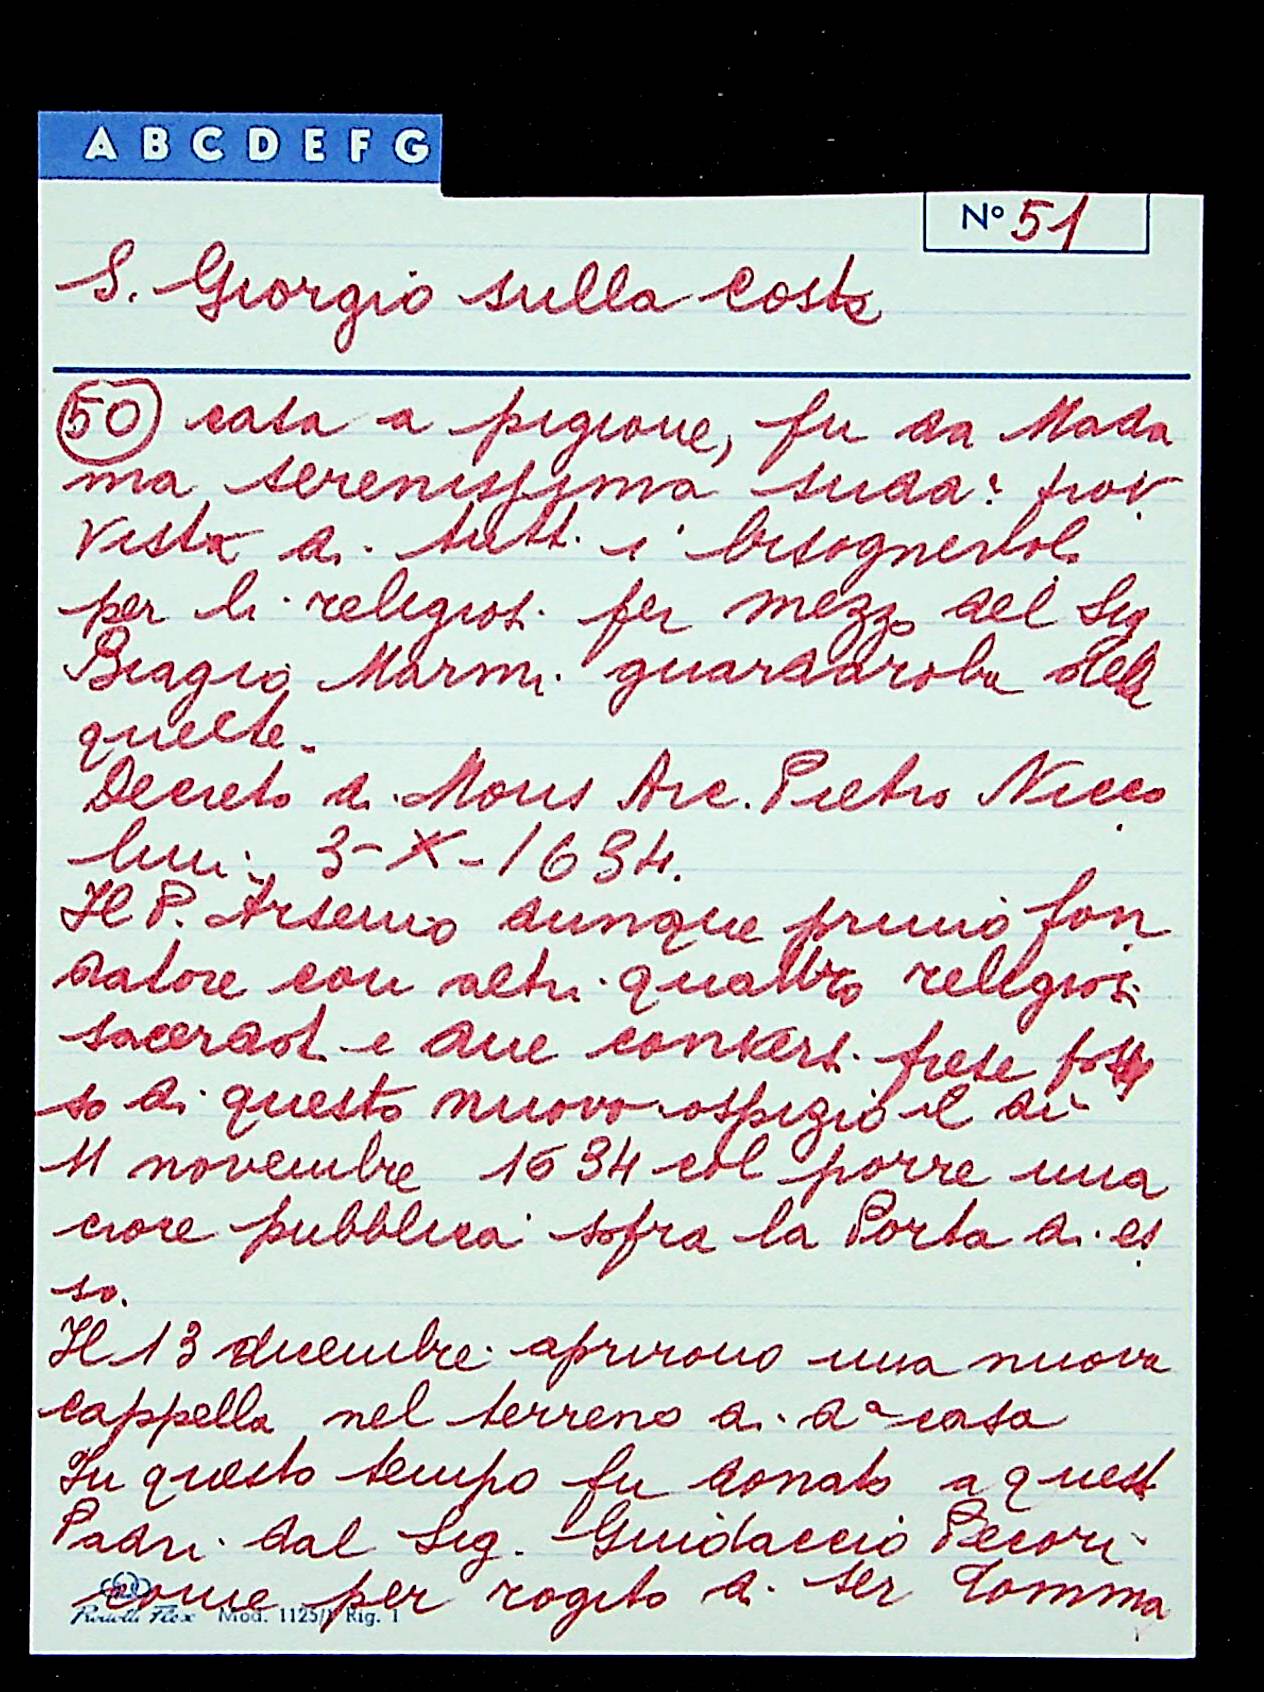 A B C D E F G
N° 51
S. Giorgio sulla Costa
50 casa a pigione, fu da Mada
ma serenissima sudda: prov
vista di tutti i bisognevoli
per li religiosi per mezzo del Sig
Biagio Marmi guardaroba dell
quelle.
Decreto di Mons Arc. Pietro Nicco
lini: 3-X-1634.
Il P. Arsenio dunque primo fon
datore con altri quattro religiosi
sacerdoti e due conversi prese posse
so di questo nuovo ospizio il dì
11 novembre 1634 col porre una
croce pubblica sopra la Porta di es
so.
Il 13 dicembre aprirono una nuova
cappella nel terreno di dª casa
In questo tempo fu donato a questi
Padri dal Sig. Guidaccio Pecori
come per rogito di ser Tomma
Flex Mod. 1125/1 Rig. 1